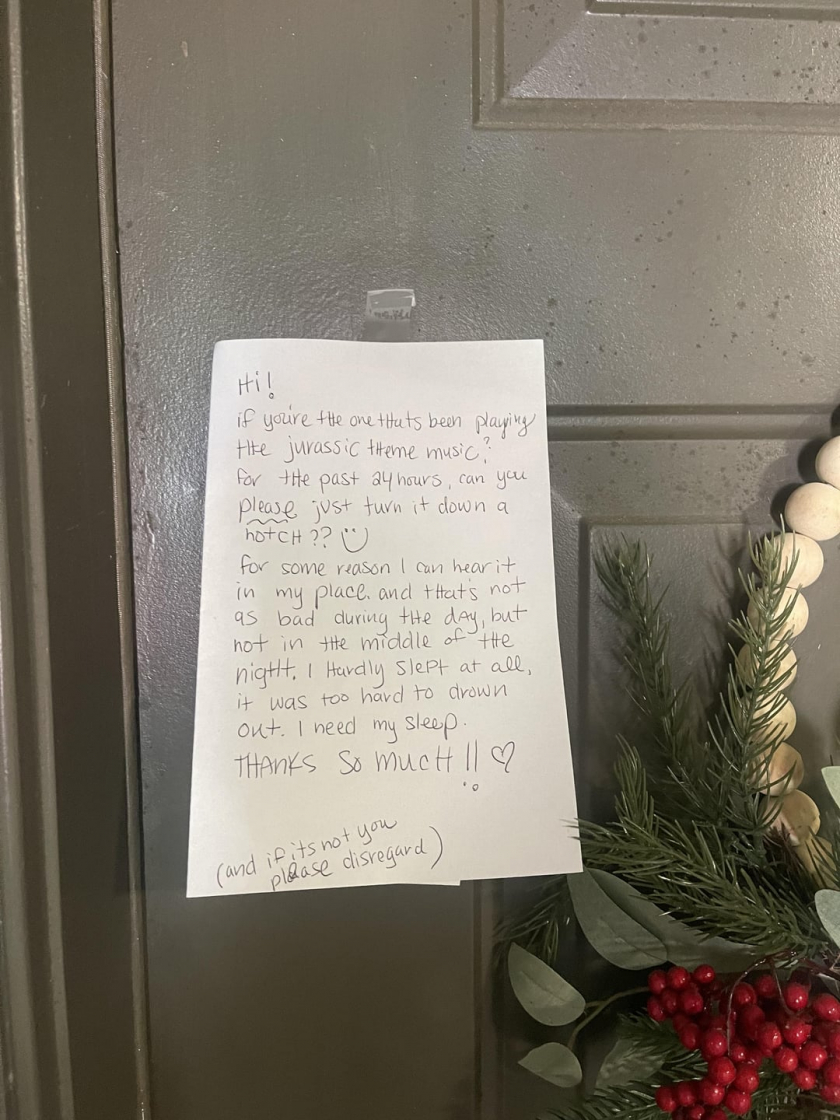 Hi!
if you're the one thats been playing
the jurassic theme music?
for the past 24 hours, can you
please just turn it down a
notch??
for some reason I can hear it
in my place. and that's not
as bad during the day, but
not in the middle of the
night. I Hardly slept at all,
it was too hard to drown
out. I need my sleep.
THANKS SO MUCH!! ♡
(and if its not you
please disregard)